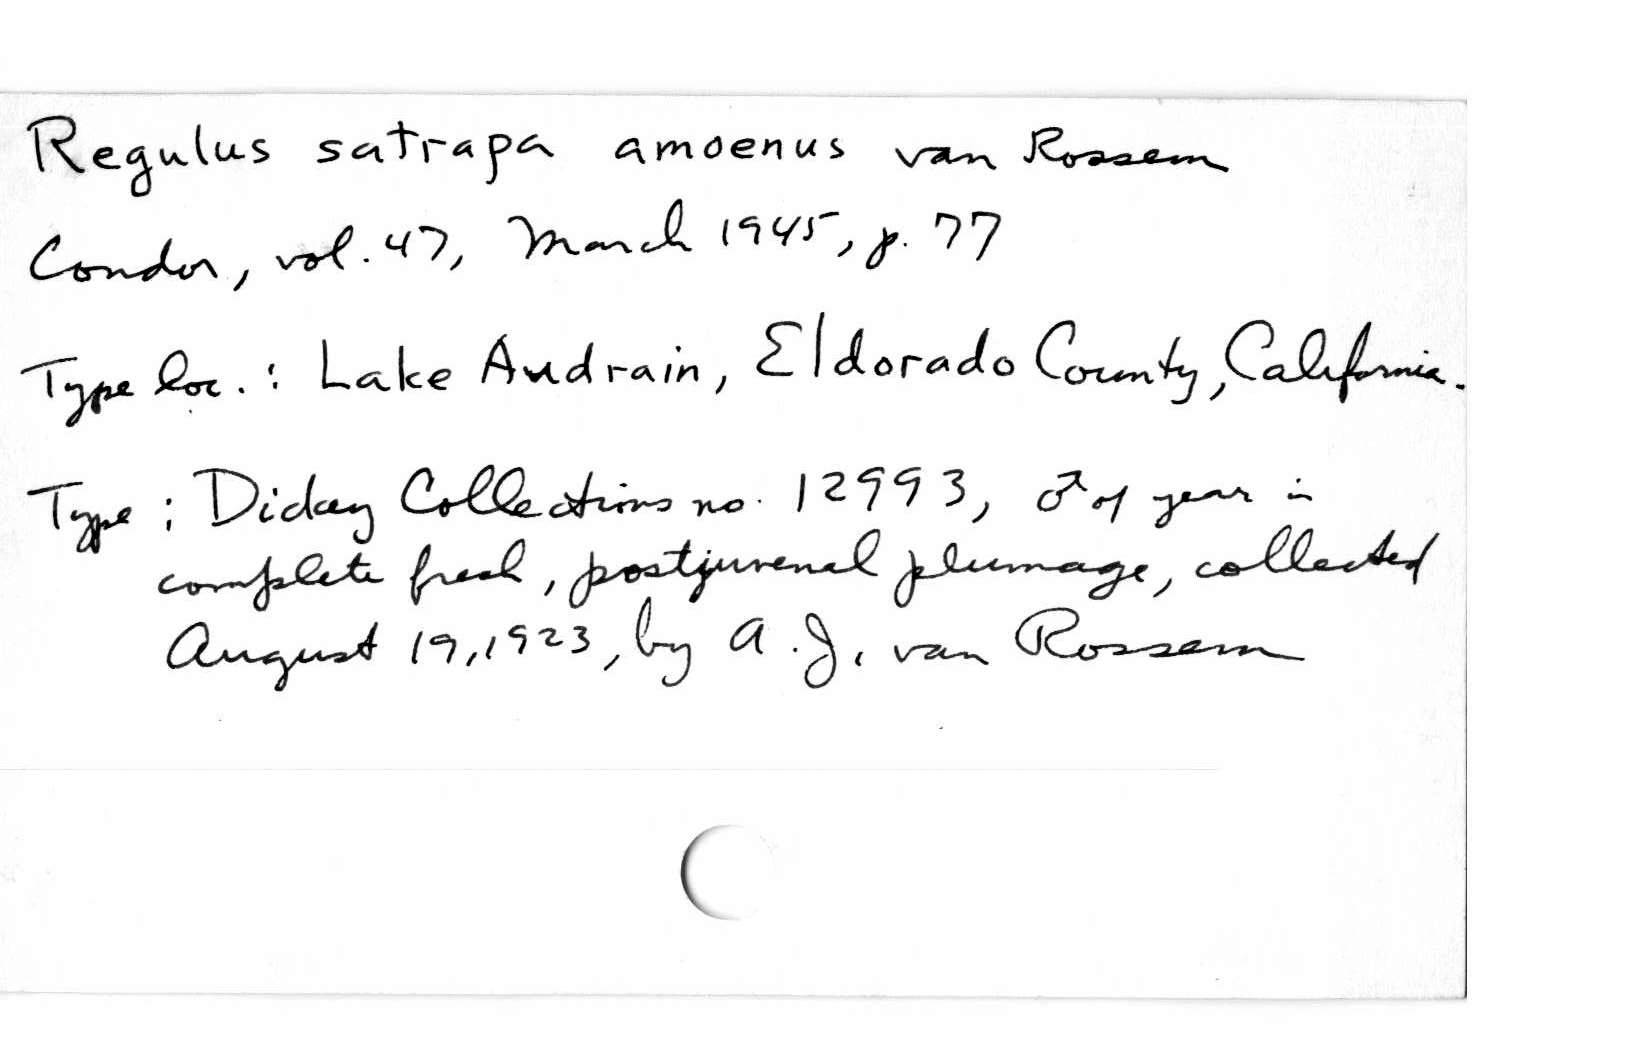 Regulus satrapa amoenus van Rossem
Condor, vol. 47, March 1945, p. 77
Type loc.: Lake Audrain, Eldorado County, California.
Type: Dickey Collections no. 12993, ♂ of year in
complete fresh, postjuvenal plumage, collected
August 19, 1923, by A. J. van Rossem